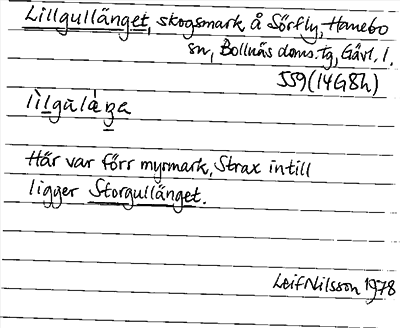 Lillgullänget, skogsmark å Sörfly, Hanebo
sn, Bollnäs doms.tg, Gävl. l.
559 (14G8h)
lìlgulàŋa
Här var förr myrmark, Strax intill
ligger Storgullänget.
Leif Nilsson 1978